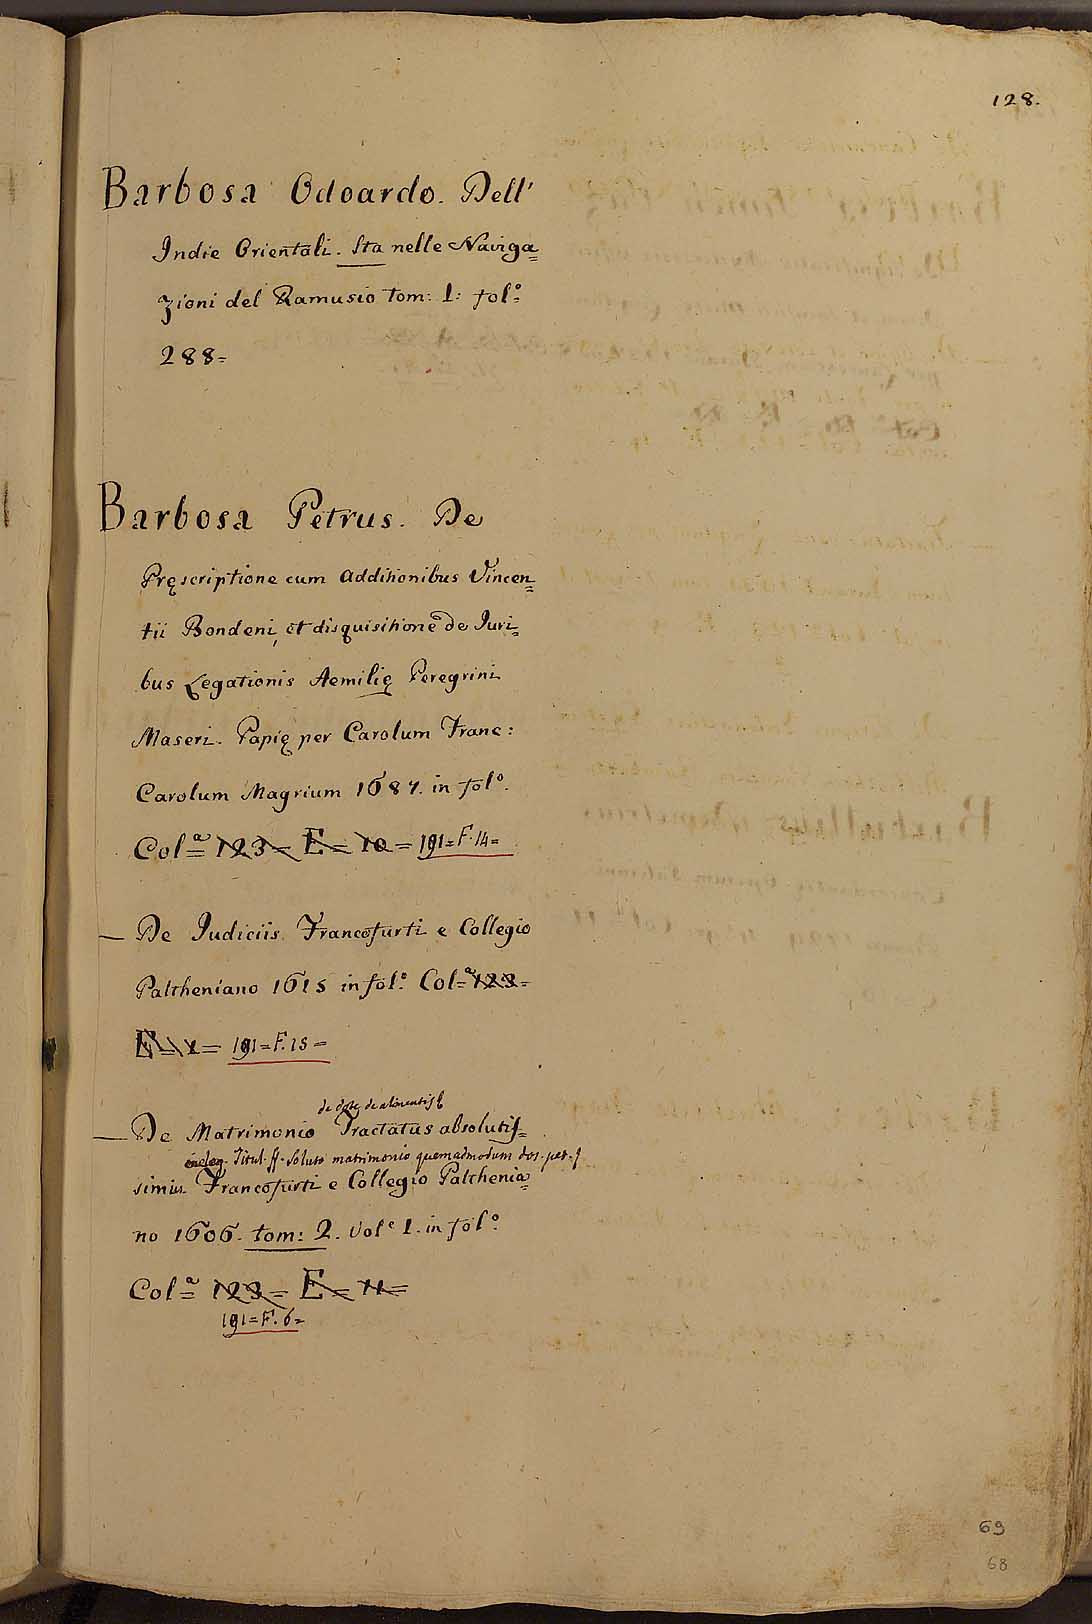 128.
Barbosa Odoardo. Dell'
Indie Orientali. Sta nelle Naviga=
zioni del Ramusio tom: 1: fol.º
288=
Barbosa Petrus. De
Pręscriptione cum additionibus Vincen=
tii Bondeni, et disquisitione de Juri=
bus Legationis Aemilię Peregrini
Maseri. Papię per Carolum Franc:
Carolum Magrium 1687. in fol.º
Col.ª 123= E= 10= 191=F.14=
— De Judiciis Francofurti e Collegio
Paltheniano 1615 in fol.º Col.ª 123=
E= 1= 191=F.15=
de dote, de alimentis &
— De Matrimonio Tractatus absolutis=
eiclem. Titul. ff. Soluto matrimonio quemadmodum dos. pet.
simus Francofurti e Collegio Palthenia=
no 1606. tom: 2. Vol.e 1. in fol.º
Col.ª 123= E= 11=
191=F.6=
69
68